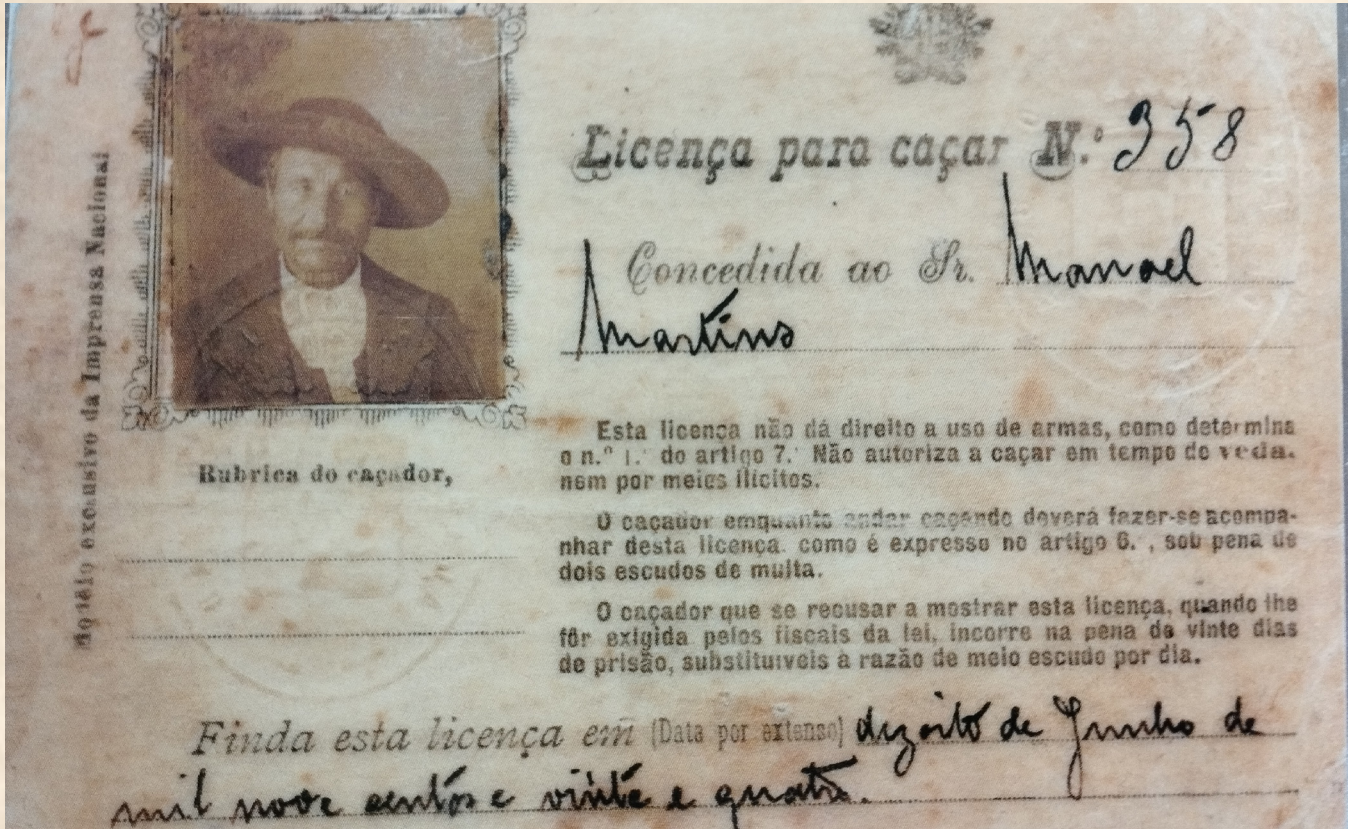 Licença para caçar N.º 358
Concedida ao Sr. Manoel
Martins
Esta licença não dá direito a uso de armas, como determina
o n.º 1.º do artigo 7.º Não autoriza a caçar em tempo de veda,
nem por meios ilícitos.
O caçador emquanto andar caçando deverá fazer-se acompa-
nhar desta licença, como é expresso no artigo 6.º, sob pena de
dois escudos de multa.
O caçador que se recusar a mostrar esta licença, quando lhe
fôr exigida pelos fiscais da lei, incorre na pena de vinte dias
de prisão, substituiveis à razão de meio escudo por dia.
Rubrica do caçador,
Modêlo exclusivo da Imprensa Nacional
Finda esta licença em (Data por extenso) dezoito de Junho de
mil nove centos e vinte e quatro.